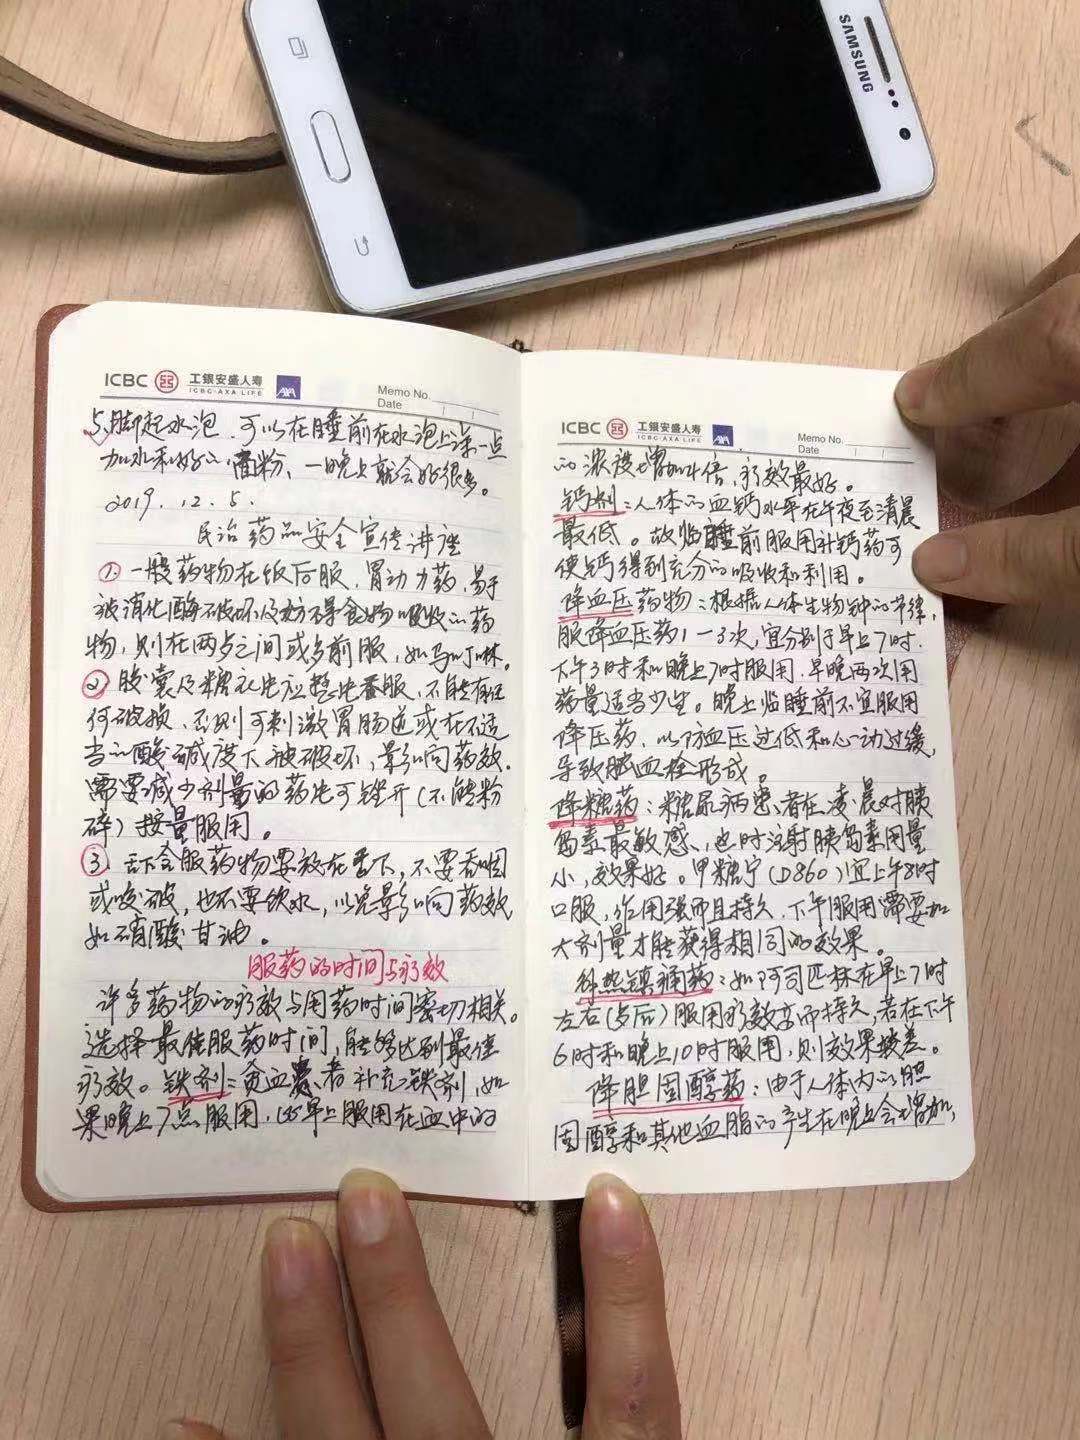 SAMSUNG
ICBC 工银安盛人寿 AXA
ICBC-AXA LIFE
Memo No.
Date
5.脚起水泡,可以在睡前在水泡上涂一点
加水和好的面粉,一晚上就会好很多。
2019.12.5.
民治药品安全宣传讲座
①一般药物在饭后服,胃动力药,易于
被消化酶破坏及妨碍食物吸收的药
物,则在两歺之间或歺前服,如吗丁啉。
②胶囊及糖衣片应整片吞服,不能有任
何破损,否则可刺激胃肠道或在不适
当的酸碱度下被破坏,影响药效.
需要减少剂量的药片可锉开(不能粉
碎)按量服用。
③舌下含服药物要放在舌下,不要吞咽
或咬破,也不要饮水,以免影响药效
如硝酸甘油。
服药的时间与疗效
许多药物的疗效与用药时间密切相关。
选择最佳服药时间,能够达到最佳
疗效。铁剂:贫血患者补充铁剂,如
果晚上7点服用,比早上服用在血中的
ICBC 工银安盛人寿 AXA
ICBC-AXA LIFE
Memo No.
Date
的浓度增加4倍,疗效最好。
钙剂:人体的血钙水平在午夜至清晨
最低。故临睡前服用补钙药可
使钙得到充分的吸收和利用。
降血压药物:根据人体生物钟的节律,
服降血压药1一3次,宜分别于早上7时.
下午3时和晚上7时服用.早晚两次用
药量适当少些。晚上临睡前不宜服用
降压药,以防血压过低和心动过缓,
导致脑血栓形成。
降糖药:糖尿病患者在凌晨对胰
岛素最敏感,此时注射胰岛素用量
小,效果好。甲糖宁(D860)宜上午8时
口服,作用强而且持久,下午服用需要加
大剂量才能获得相同的效果。
解热镇痛药:如阿司匹林在早上7时
左右(歺后)服用疗效高而持久,若在下午
6时和晚上10时服用,则效果较差。
降胆固醇药:由于人体内的胆
固醇和其他血脂的产生在晚上会增加,